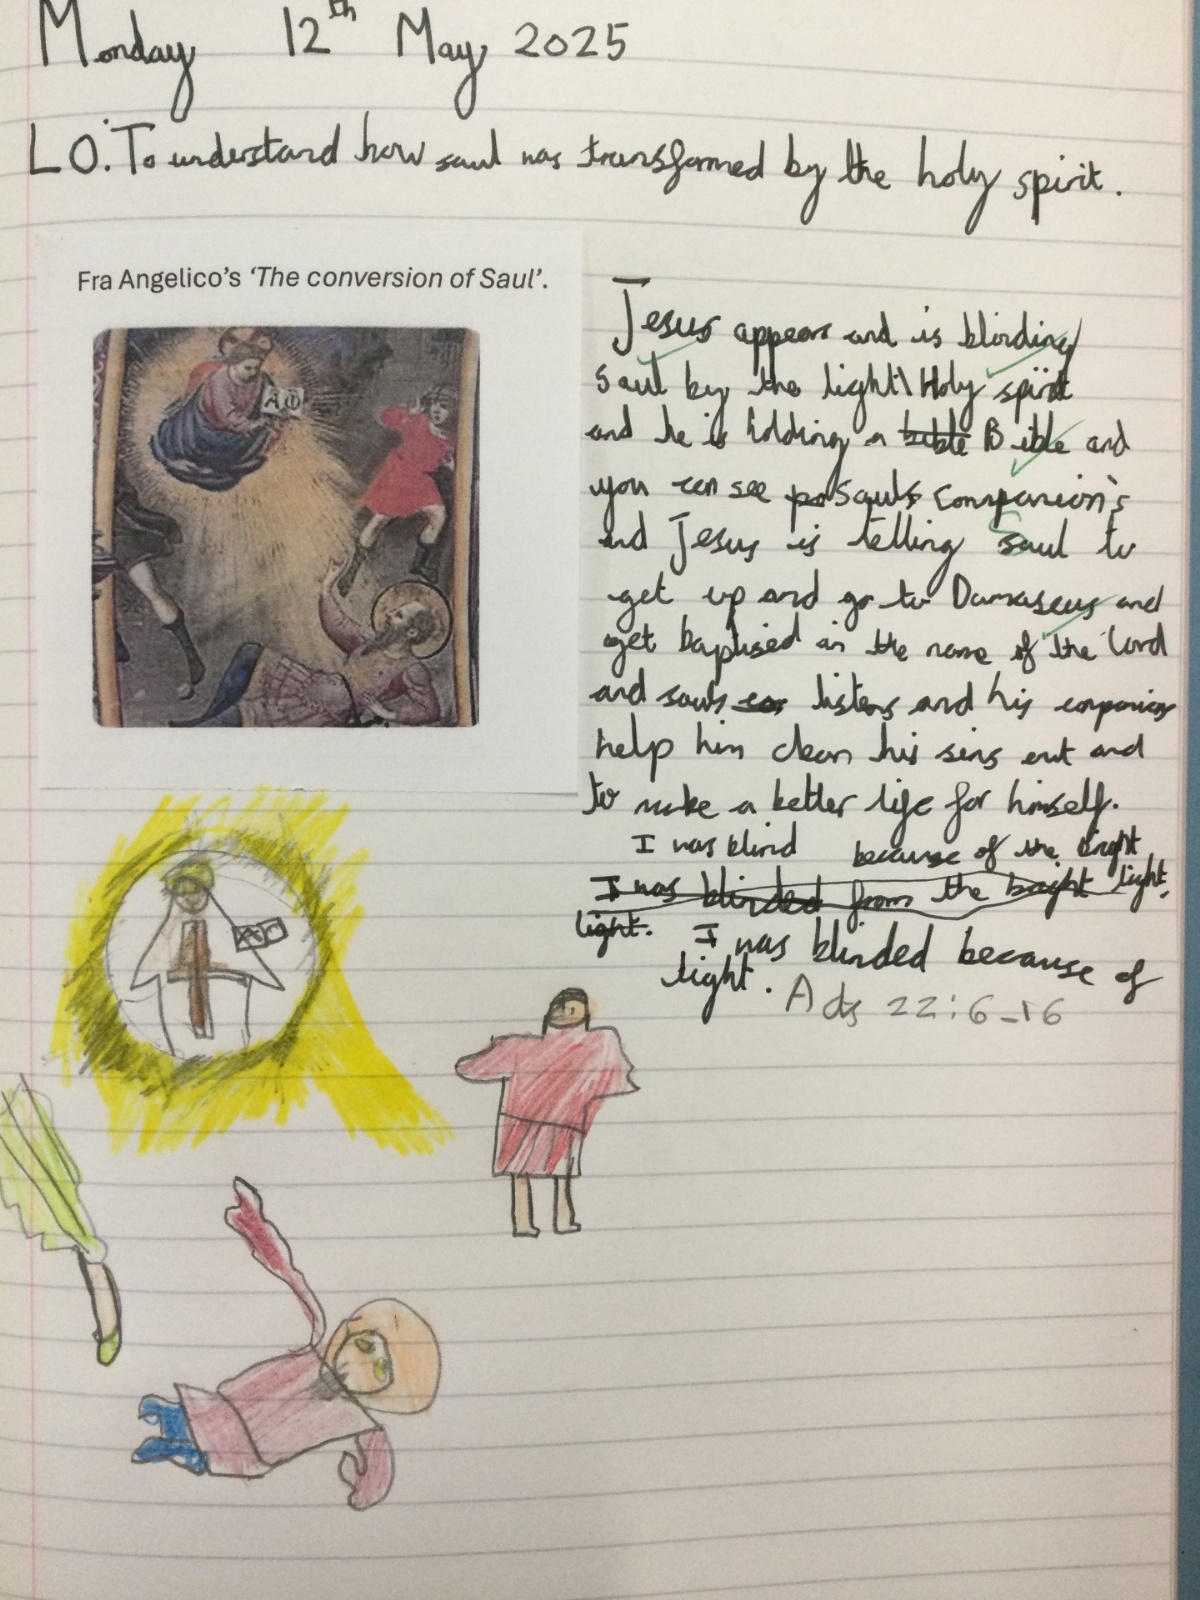 Monday 12th May 2025
LO: To understand how saul was transformed by the holy spirit.
Fra Angelico's 'The conversion of Saul'.
Jesus appears and is blinding
Saul by the light\ Holy spirit
and he is holding a bible Bible and
you can see po Sauls companion's
and Jesus is telling Saul to
get up and go to Damascus and
get baptised in the name of the lord
and sauls listens and his companions
help him clean his sins out and
to make a better life for himself.
I was blind because of the bright
I was blinded from the bright light.
light. I was blinded because of
light.
Acts 22:6-16